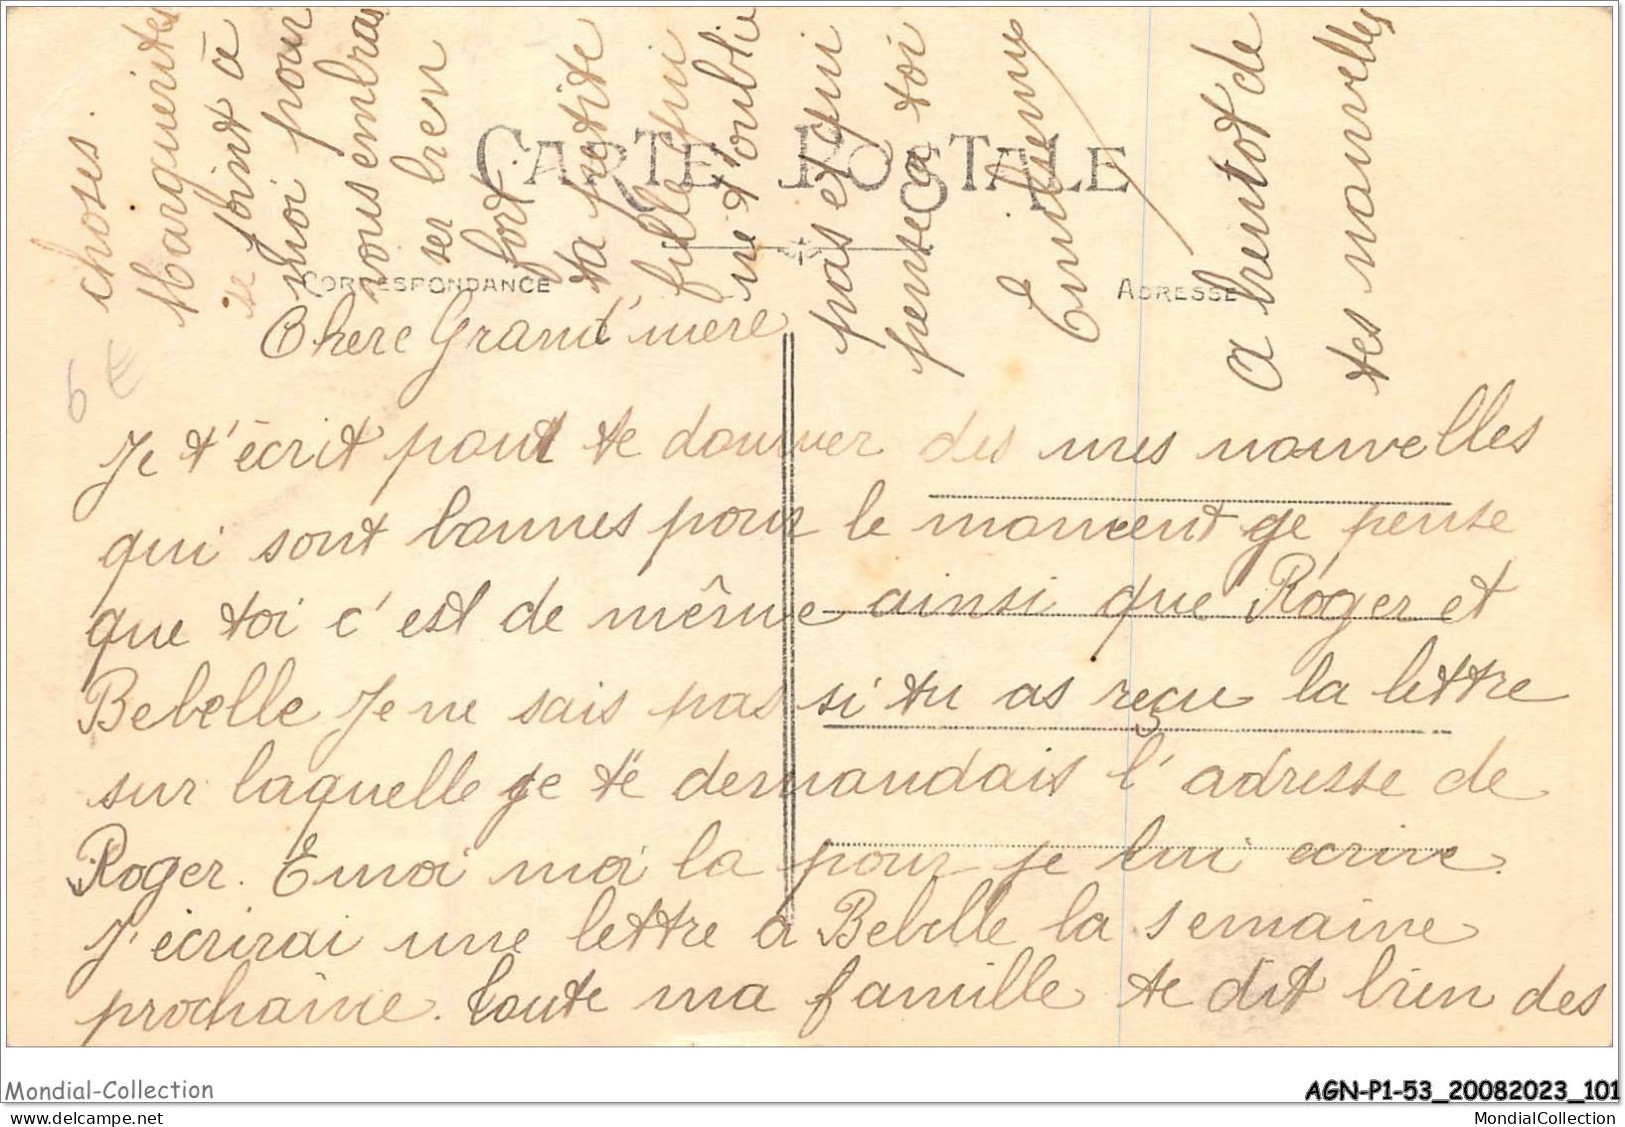 CARTE POSTALE
CORRESPONDANCE
ADRESSE
Chere Grand'mere
Je t'écrit pour te donner des mes nouvelles
qui sont bonnes pour le moment ge pense
que toi c'est de même ainsi que Roger et
Bebelle Je ne sais pas si tu as reçu la lettre
sur laquelle je te demandais l'adresse de
Roger. Envoi moi la pour je lui ecrire.
J'écrirai une lettre à Bebelle la semaine
prochaine. toute ma famille te dit bien des
choses.
Marguerites
se joint à
moi pour
vous embras
ser bien
fort.
ta petite
fille qui
ne t'oublie
pas et qui
pense a toi
A bientot de
tes nouvelles
Mondial-Collection
AGN-P1-53_20082023_101
delcampe.net
MondialCollection